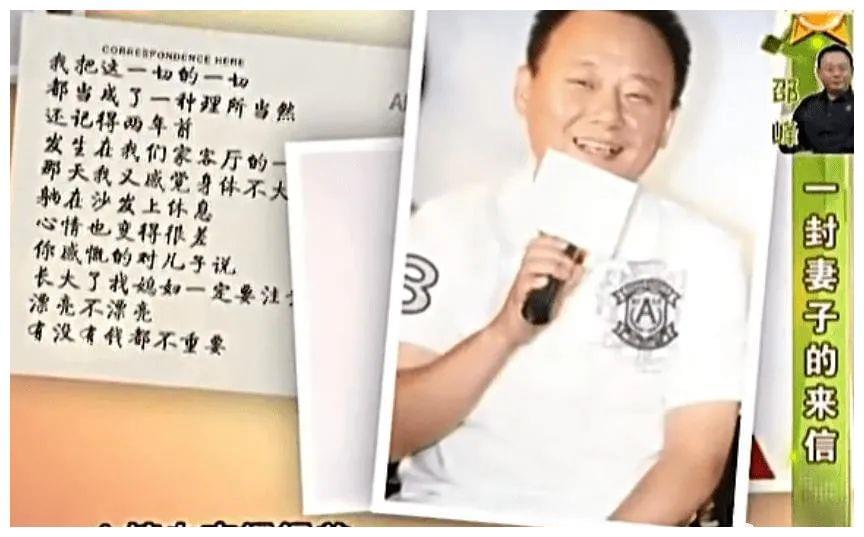 CORRESPONDENCE HERE
我把这一切的一切
都当成了一种理所当然
还记得两年前
发生在我们家客厅的一
那天我又感觉身体不大
躺在沙发上休息
心情也变得很差
你感慨的对儿子说
长大了找媳妇一定要注
漂亮不漂亮
有没有钱都不重要
A
邵峰
一封妻子的来信